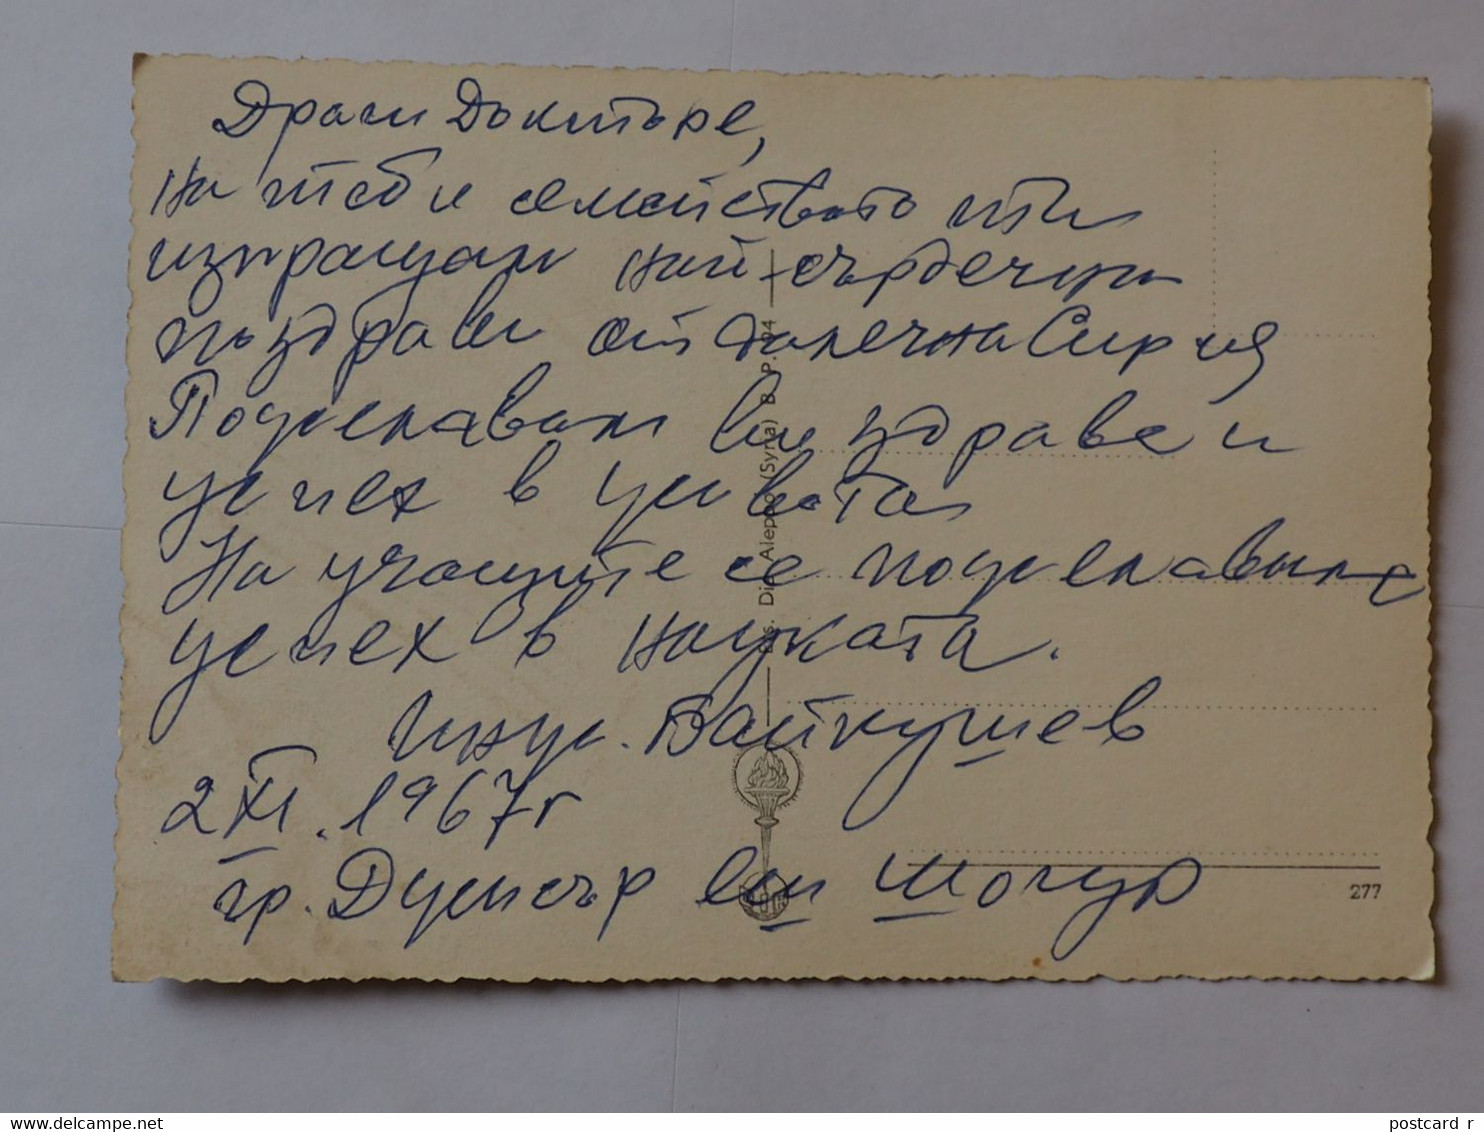 Драги Докторе,
на теб и семейството ти
изпращам най-сърдечни
поздрави от далечна Сирия
Пожелавам Ви здраве и
успех в живота
На учащите се пожелавам
успех в науката.
инж. Байкушев
2 XI. 1967 г
гр. Джисър еш Шогур
Eds. Aleppo (Syria) B. P. 94
277
postcard r